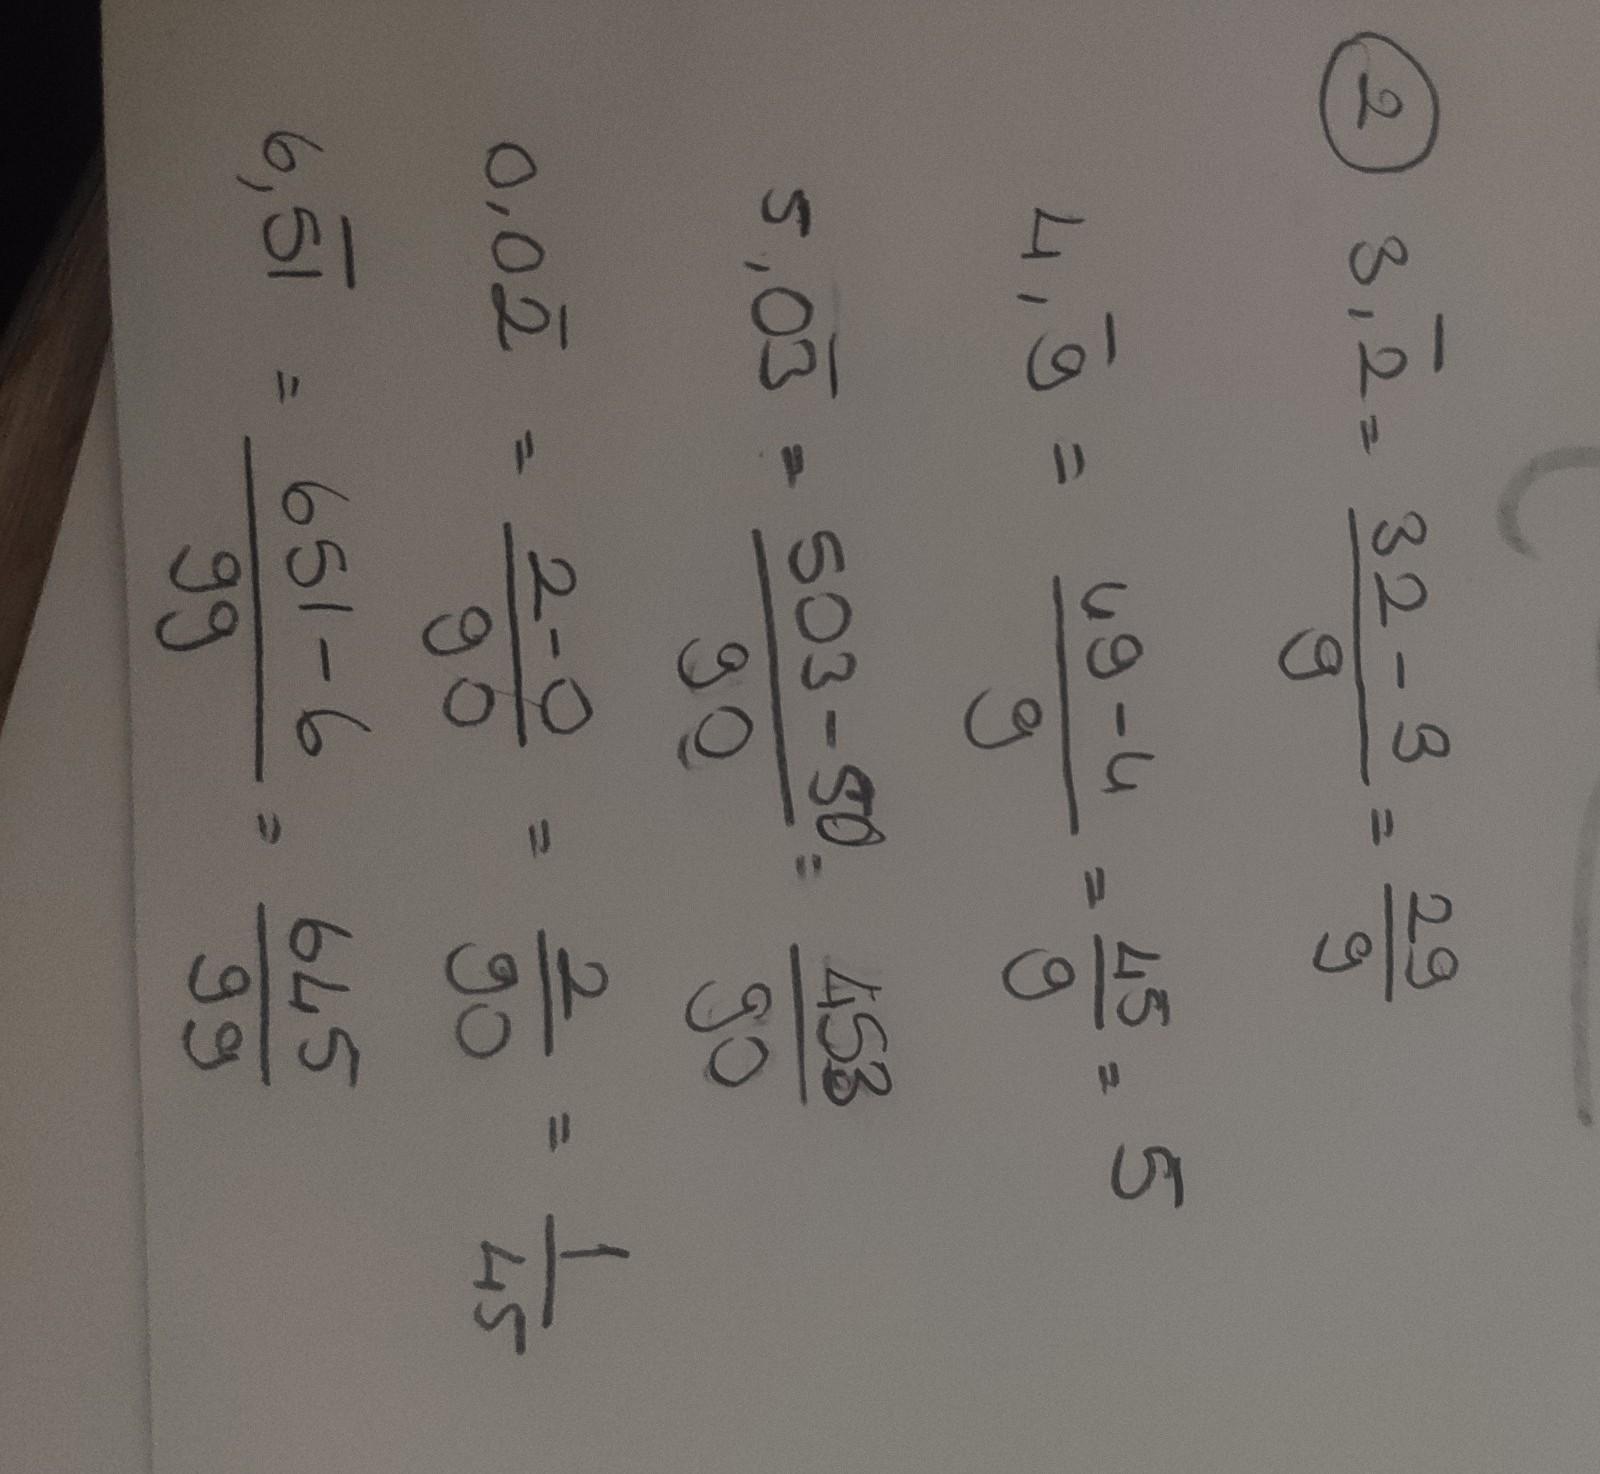 ② 3,2̅ = 32-3/9 = 29/9
4,9̅ = 49-4/9 = 45/9 = 5
5,03̅ = 503-50/90 = 453/90
0,02̅ = 2-0/90 = 2/90 = 1/45
6,5̅1̅ = 651-6/99 = 645/99